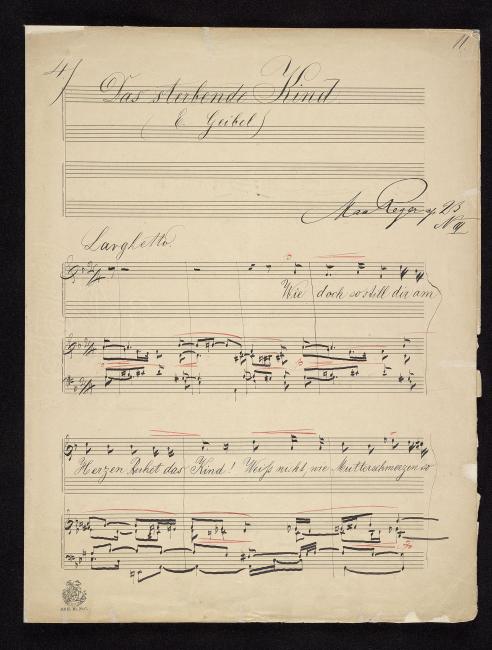 11
4)
Das sterbende Kind
(E. Geibel)
Max Reger op 23
Larghetto.
Wie doch so still dir am
Herzen Ruhet das Kind! Weiß nicht, wie Mutterschmerzen so